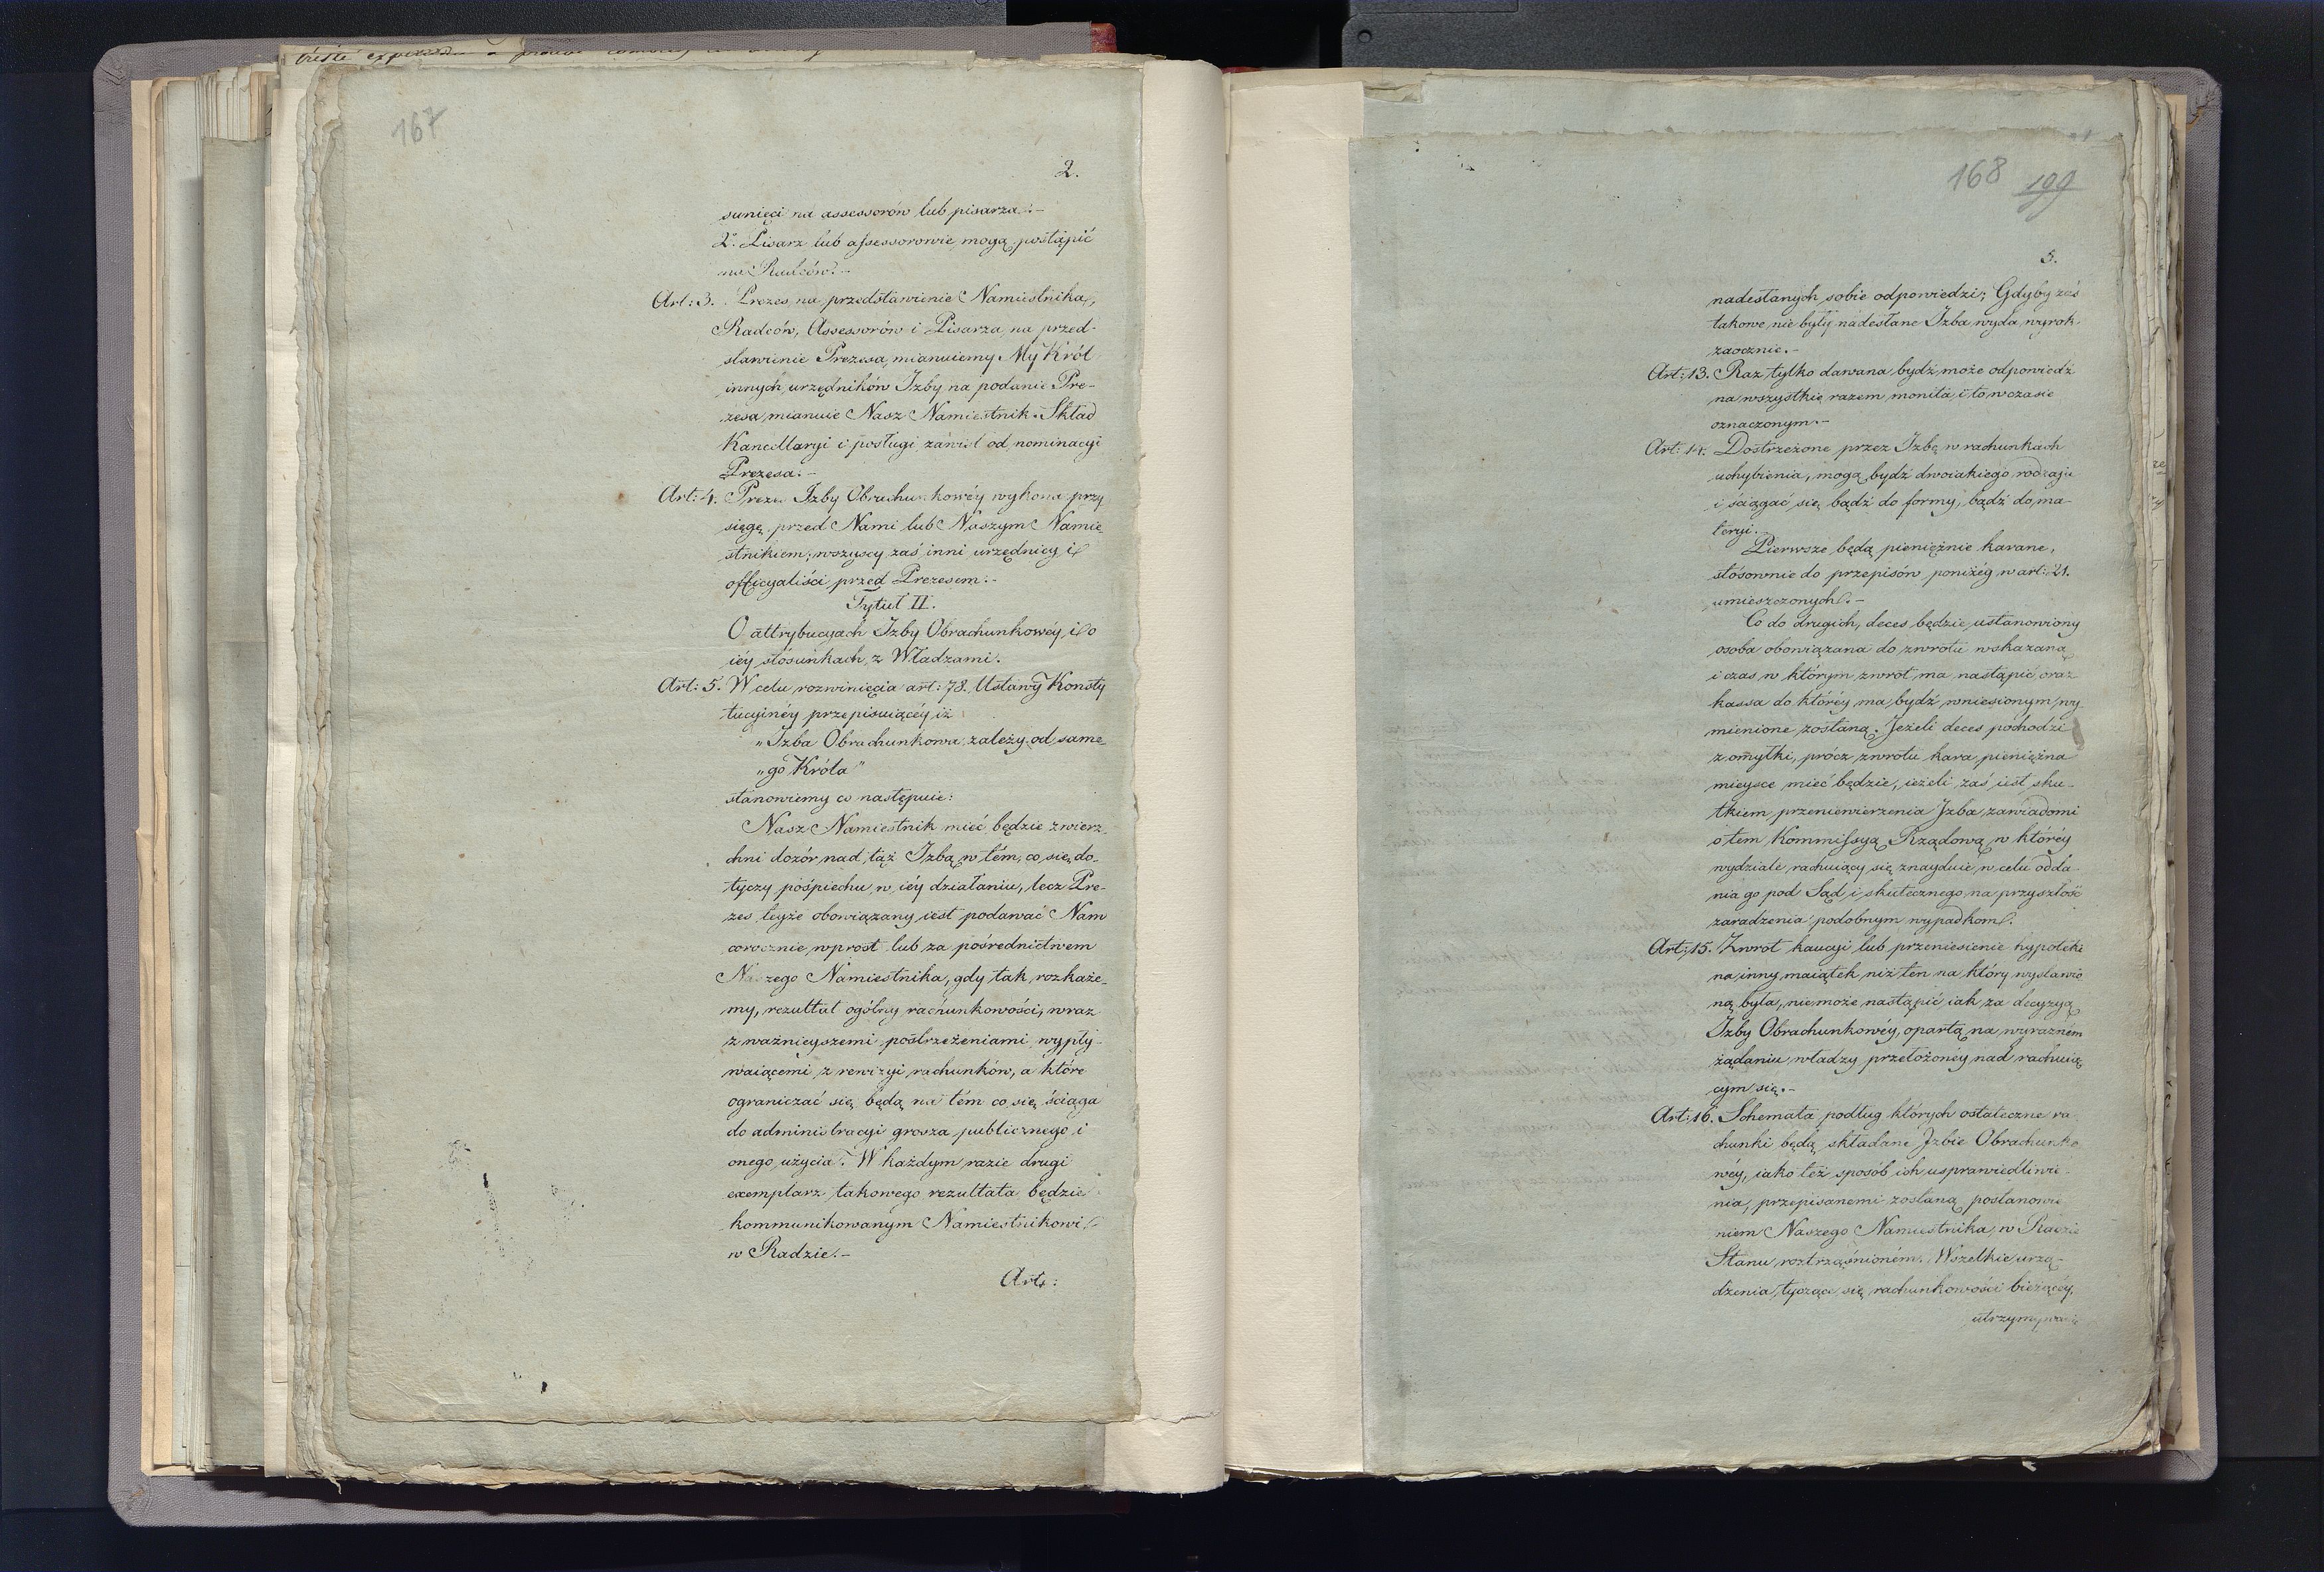 167
2.
sunięci na assessorów lub pisarza.-
2° Pisarz lub assessorowie mogą postąpić
na Radców.-
Art: 3. Prezes na przedstawienie Namiestnika,
Radców, Assessorów i Pisarza na przed-
stawienie Prezesa, mianuiemy My Król
innych urzędników Izby na podanie Pre-
zesa, mianuie Nasz Namiestnik. Skład
Kancellaryi i posługi zawisł od nominacyi
Prezesa.-
Art: 4. Prezes Izby Obrachunkowéy wykona przy
sięgę przed Nami lub Naszym Namie-
stnikiem; wszyscy zaś inni urzędnicy i
officyaliści przed Prezesem.-
Tytuł II.
O attrybucyach Izby Obrachunkowéy, i o
iéy stósunkach z Władzami.
Art: 5. W celu rozwinięcia art: 78. Ustawy Konsty
tucyinéy przepisuiącéy iż
"Izba Obrachunkowa zależy od same-
"go Króla"
stanowiemy co następuie:
Nasz Namiestnik mieć będzie zwierz-
chni dozór nad taż Izbą w tém, co się do-
tyczy pośpiechu w iéy działaniu, lecz Pre-
zes teyże obowiązany iest podawać Nam
corocznie wprost lub za pośrednictwem
Naszego Namiestnika, gdy tak rozkaże-
my, rezultat ogólny rachunkowości, wraz
z ważnieyszemi postrzeżeniami wypły-
waiącemi z rewizyi rachunków, a które
ograniczać się będą na tém co się ściąga
do administracyi grosza publicznego i
onego użycia. W każdym razie drugi
exemplarz takowego rezultata będzie
kommunikowanym Namiestnikowi
w Radzie.-
Art:
168 199
5.
nadesłanych sobie odpowiedzi; Gdyby zaś
takowe nie były nadesłane Izba wyda wyrok
zaocznie.-
Art: 13. Raz tylko dawana bydź może odpowiedź
na wszystkie razem monita i to w czasie
oznaczonym.-
Art: 14. Dostrzeżone przez Izbę w rachunkach
uchybienia, mogą bydź dwoiakiego rodzaju
i ściągać się bądź do formy, bądź do ma-
teryi.
Pierwsze będą pieniężnie karane,
stósownie do przepisów poniżéy w art: 21.
umieszczonych.-
Co do drugich, deces będzie ustanowiony
osoba obowiązana do zwrotu wskazaną
i czas w którym zwrot ma nastąpić, oraz
kassa do któréy ma bydź wniesionym, wy
mienione zostaną. Jeżeli deces pochodzi
z omyłki, prócz zwrotu kara pieniężna
mieysce mieć będzie, ieżeli zaś iest sku-
tkiem przeniewierzenia Izba zawiadomi
o tem Kommissyą Rządową w któréy
wydziale rachuiący się znayduie w celu odda-
nia go pod Sąd i skutecznego na przyszłość
zaradzenia podobnym wypadkom.
Art: 15. Zwrot kaucyi lub przeniesienie hypoteki
na inny maiątek niż ten na który wystawio
ną była, nie może nastąpić iak za decyzyą
Izby Obrachunkowéy, opartą na wyraźném
żądaniu władzy przełożonéy nad rachuią
cym się.-
Art: 16. Schemata podług których ostateczne ra
chunki będą składane Izbie Obrachunko
wéy, iako też sposób ich usprawiedliwie-
nia, przepisanemi zostaną postanowie
niem Naszego Namiestnika, w Radzie
Stanu roztrząśnioném. Wszelkie urzą-
dzenia, tyczące się rachunkowości bieżącéy,
utrzymywanie